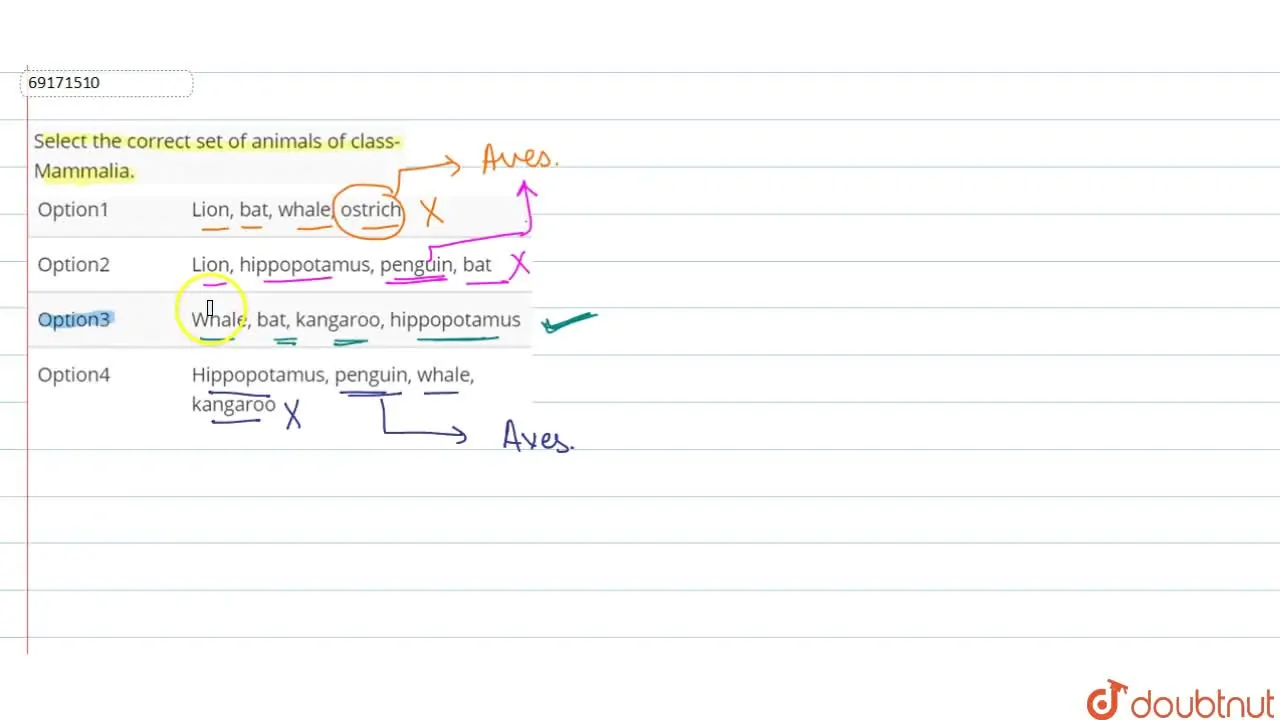 69171510
Select the correct set of animals of class-
Mammalia.
Aves.
Option1 Lion, bat, whale, ostrich X
Option2 Lion, hippopotamus, penguin, bat X
Option3 Whale, bat, kangaroo, hippopotamus
Option4 Hippopotamus, penguin, whale,
kangaroo X
Aves.
doubtnut